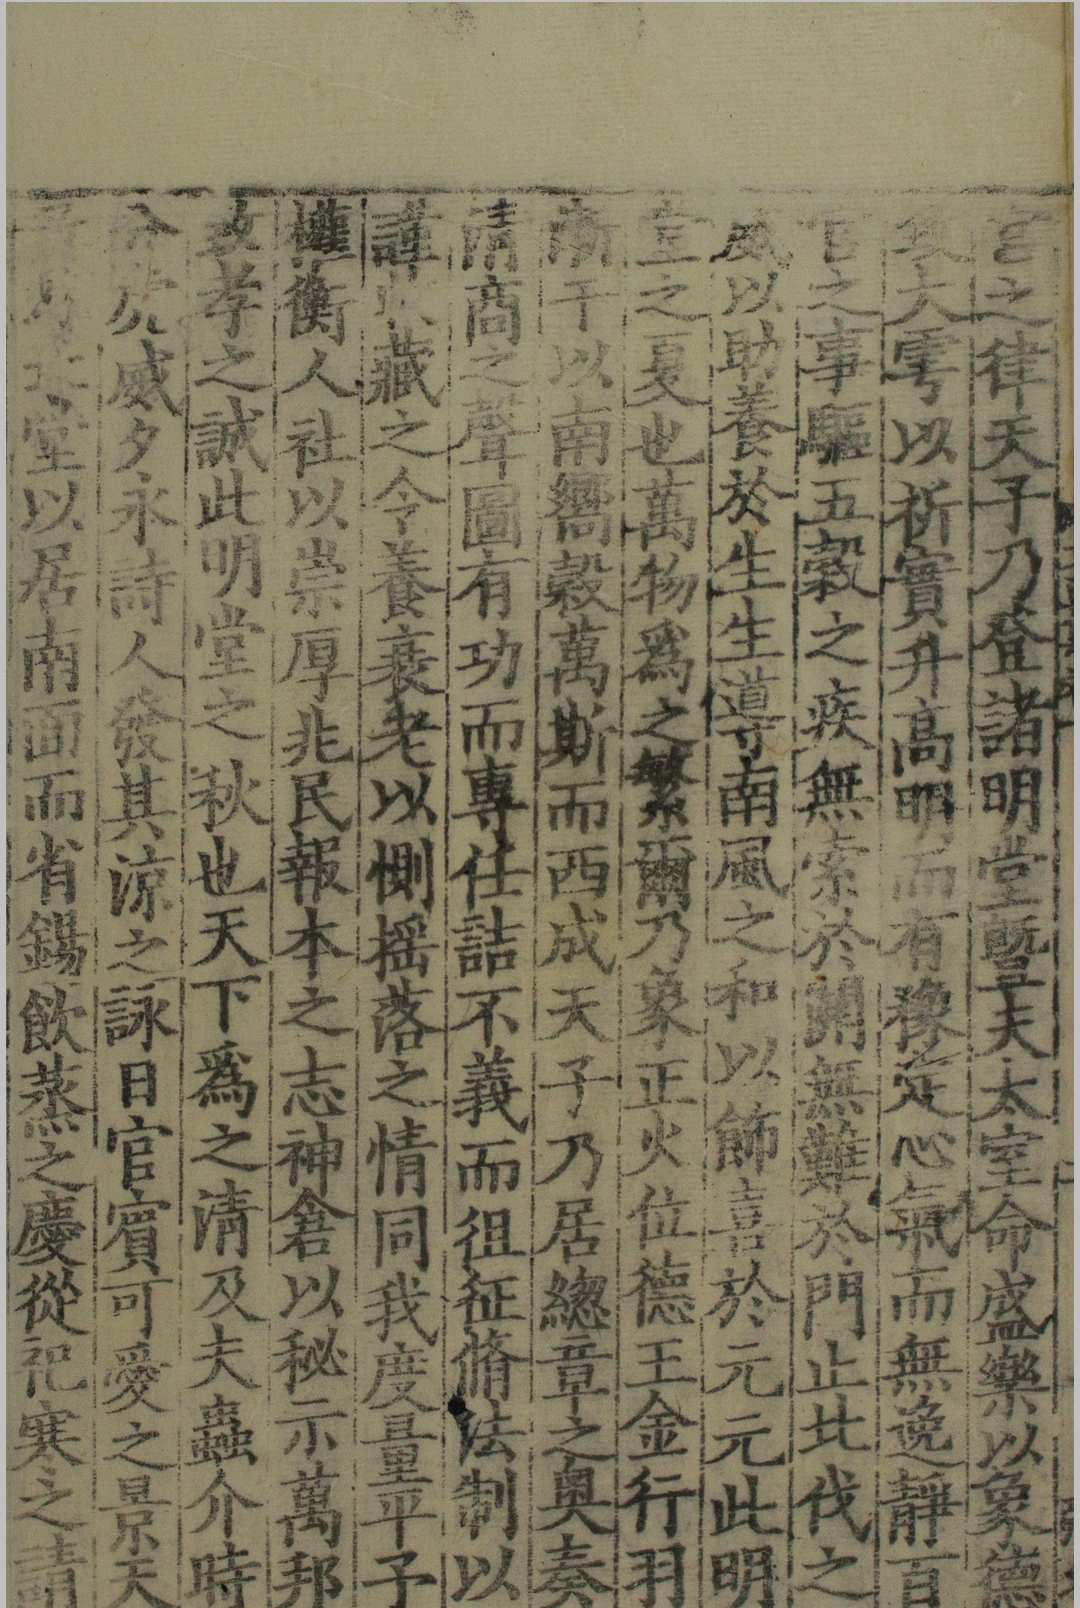 宫之律天子乃登諸明堂曁夫太室命盛樂以象德
大雩以祈實升高明而有豫定心氣而無逸靜百
官之事驅五穀之疾無索於關無難於門止北伐之
威以助養於生生導南風之和以飾喜於元元此明
堂之夏也萬物爲之繁爾乃象正火位德王金行羽
漸于以南嚮穀萬斯而西成天子乃居緫章之奥奏
清商之聲圖有功而專任詰不義而徂征脩法制以
謹藏之令養衰老以惻揺落之情同我度量平予
權衡人社以崇厚兆民報本之志神倉以秘示萬邦
致孝之誠此明堂之秋也天下爲之清及夫蟲介時
分虎威夕永詩人發其凉之詠日官賓可愛之景天
堂以居南面而省錫飲烝之慶從祀寒之請